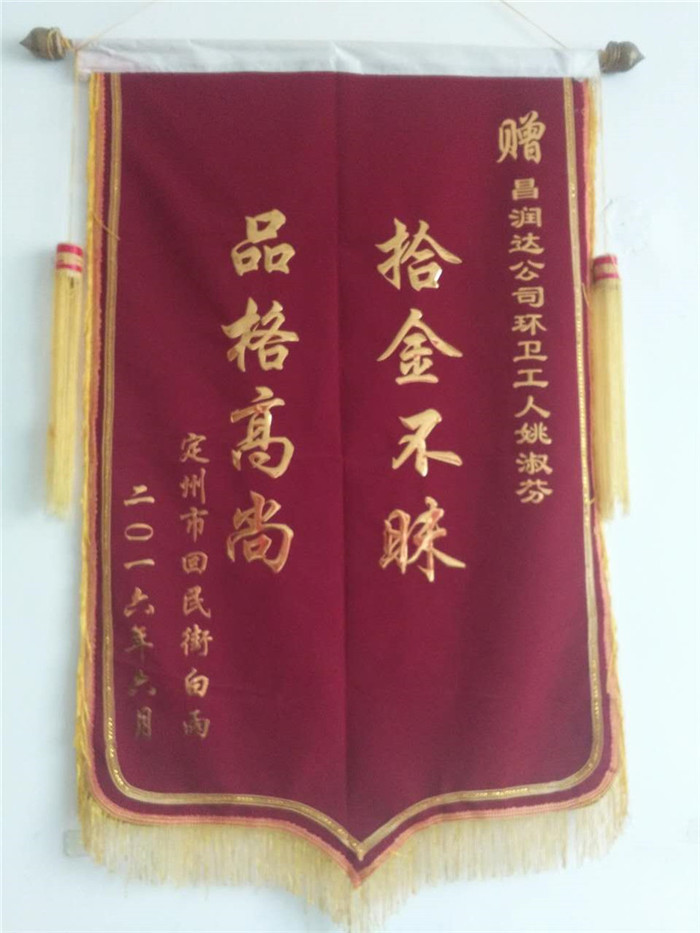 赠昌润达公司环卫工人姚淑芬
拾金不昧
品格高尚
定州市回民街白雨
二〇一六年六月